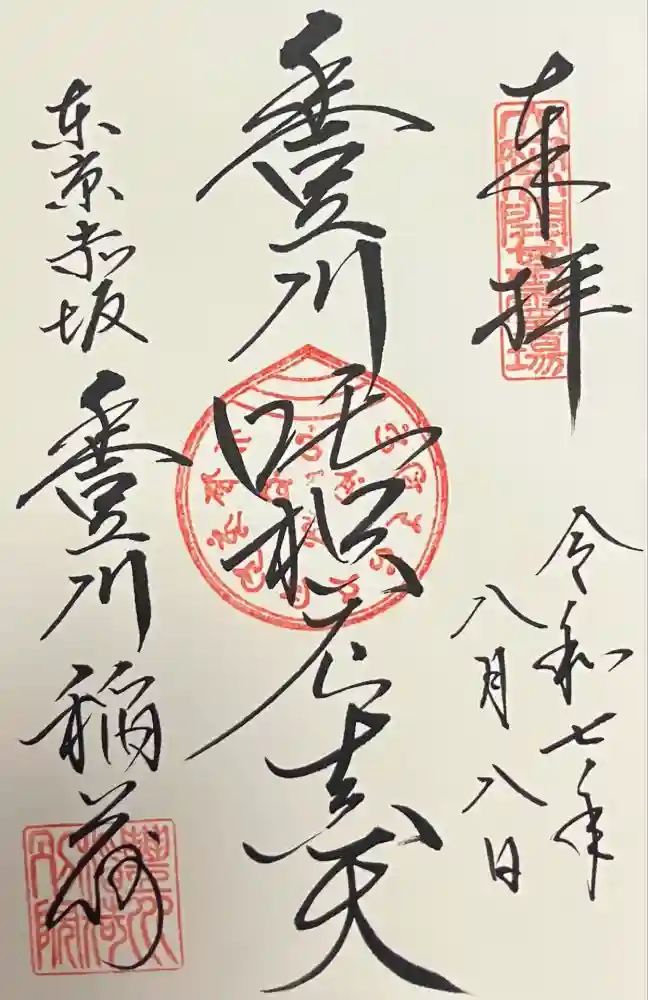 来拝
令和七年
八月八日
豊川
吒枳尼真天
東京赤坂
豊川稲荷